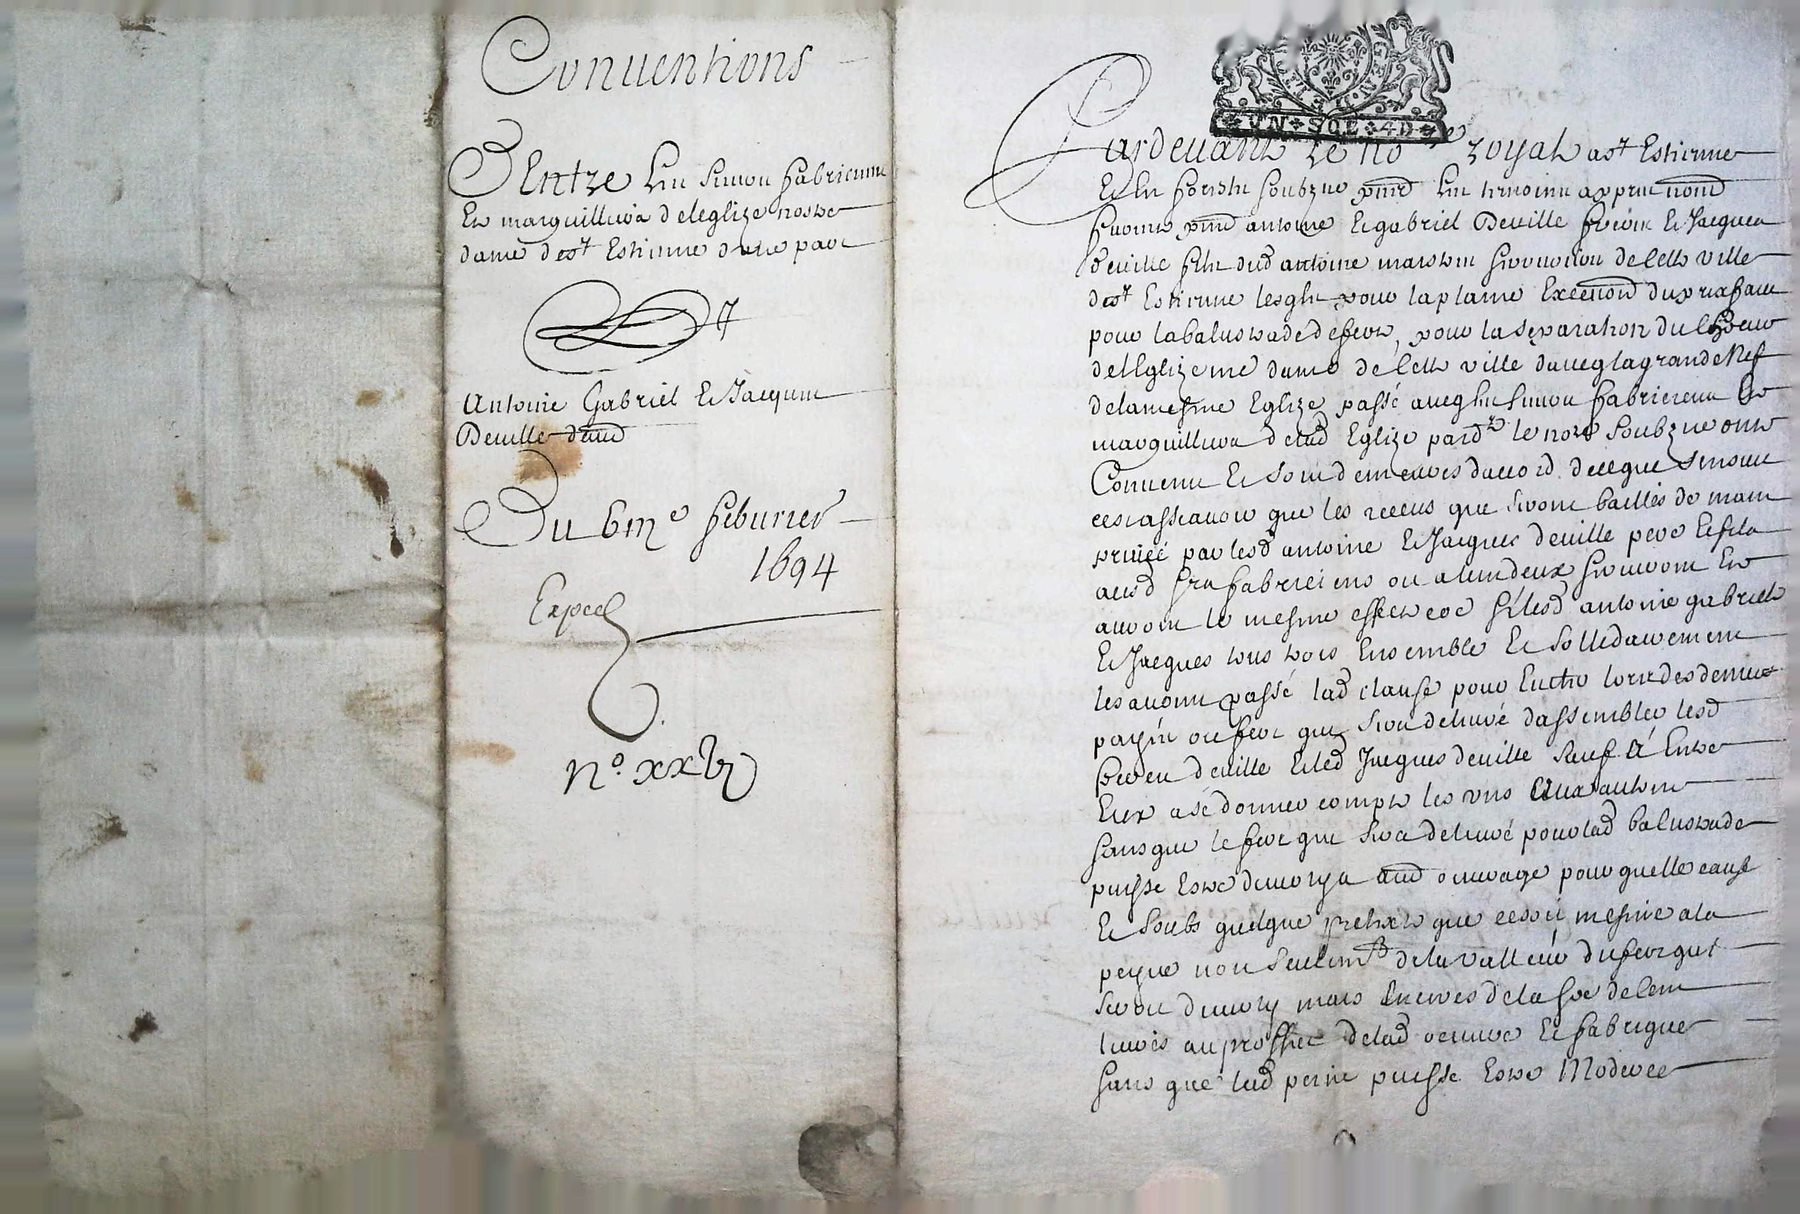 Conventions
Entre les sieurs fabriciens
et marguilliers de leglize nostre
dame de st Estienne d'une part
Et
Antoine Gabriel et Jacques
Deville daud
Du 6me feburier
1694
Exped
No. xxv
UN SOL 4D
Pardevant le nore royal a st Estienne
et en forestz soubzne pnd les tesmoins appres nom
furent pnd antoine et gabriel Deville freres et Jacques
deville filz dud antoine marteurs de cette ville
de st Estienne lesqls pour la plaine Execuon du prixfaict
pour la balustrade de fert, pour la separation du Choeur
de lEglize nre dame de cette ville daveq la grande Nef
de la mesme Eglize passé aveq les sieurs fabriciens et
marguilliers de lad Eglize pardt le nore Soubzne ont
Convenu et sont demeurés dacord de ce que sensuit
cest assavoir que les receus que seront baillés de main
privée par lesd antoine et Jacques deville pere et fils
ausd srs fabriciens ou a lun deux serviront et
auront le mesme effect que si lesd antoine gabriel
et Jacques tous trois Ensemble et sollidairement
les avoint passé lad clause pour
ou fert que sera delivré dassembler lesd
freres deville et led Jacques deville sauf a Entre
Eux a se donner compte les uns aux autres
sans que le fert que sera delivré pour lad balustrade
puisse Estre diverty a aud ouvrage pour quelle cause
et soubs quelque pretexte que ce soit mesme a la
peyne non seulemt de la valleur du fert qui
seroit diverty mais Encores de la
livres au proffict de lad oeuvre et fabrique
sans que lad peine puisse Estre Moderee